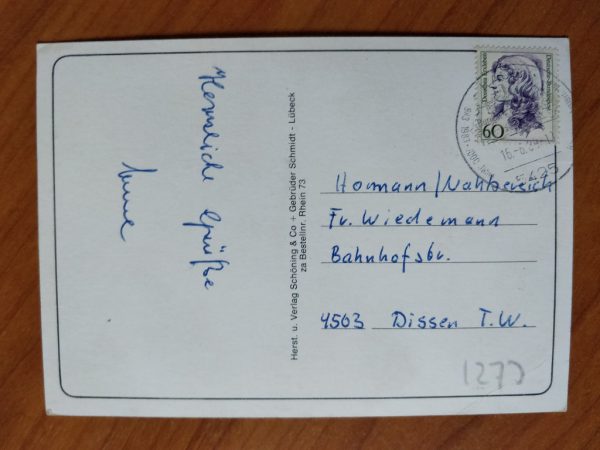 Herzliche Grüße
Herst. u. Verlag Schöning & Co + Gebrüder Schmidt - Lübeck
za Bestellnr. Rhein 73
60
Deutsche Bundespost
Hormann/Nahbereich
Fr. Wiedemann
Bahnhofstr.
4503 Dissen T.W.